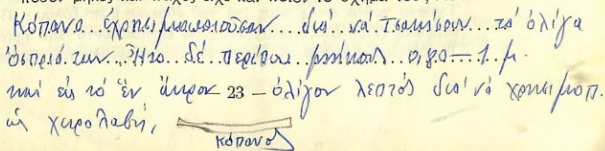 Κόπανο..ἐχρησιμοποιοῦσαν...διά νά τσακίσουν...τά ὀλίγα
ὄσπριά των..Ἦτο..δέ περίπου..μήκους..0,80—1 μ.
καί εἰς τό ἕν ἄκρον — 23 — ὀλίγον λεπτός διά νά χρησιμοπ.
ὡς χειρολαβή,
κόπανος